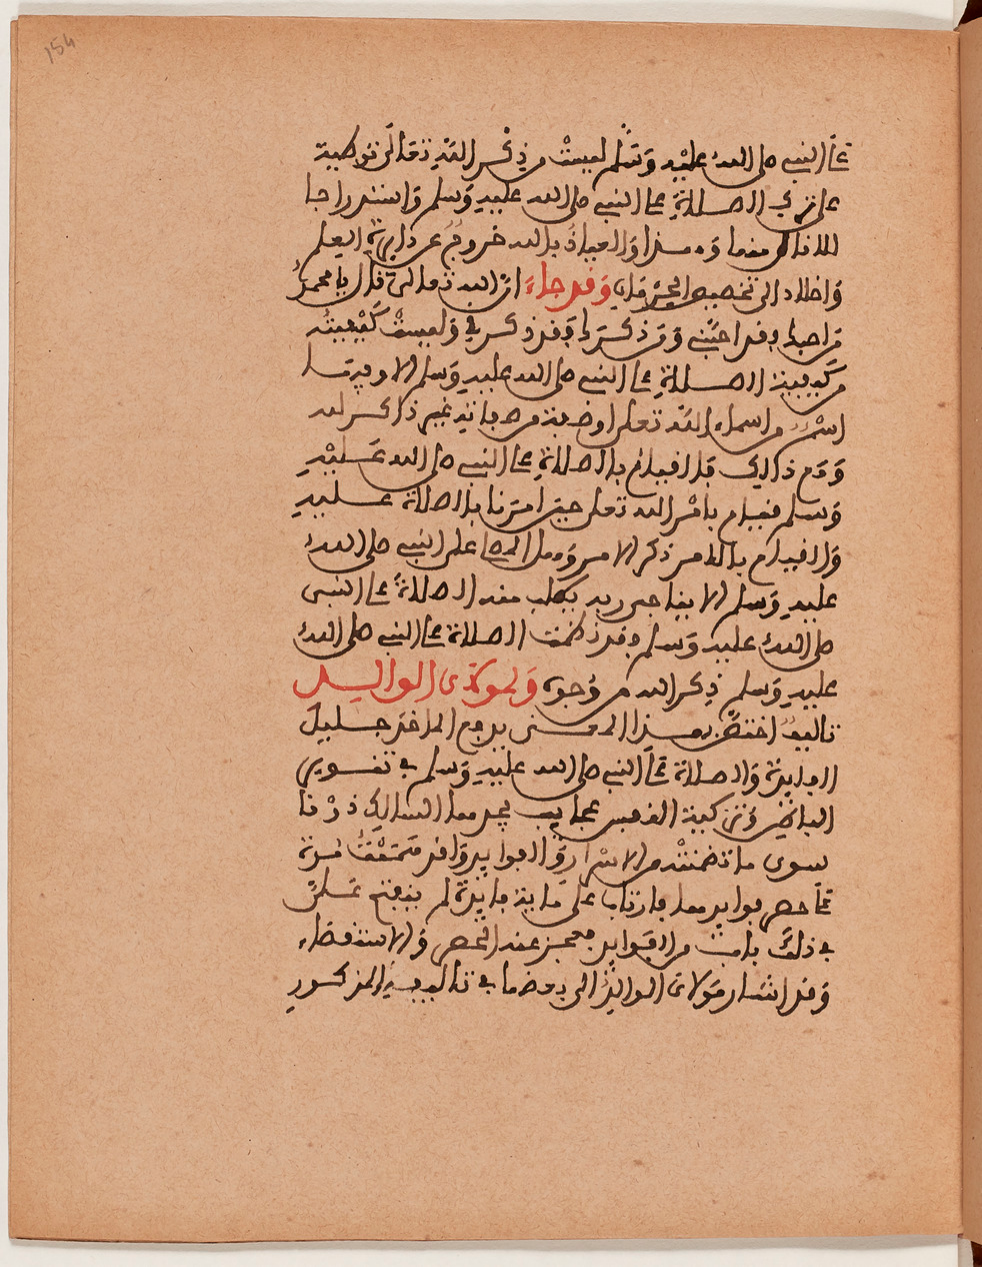 154
على النبي صلى الله عليه وسلم ليست من ذكر الله تعالى توطية
على ترك الصلاة على النبي صلى الله عليه وسلم واستدراجا
للناس منها وهذا والعياذ بالله خروج عن دايرة العلم
وقد جاء ان الله تعالى قال يا محمد
من احبك فقد احبني ومن ذكرك فقد ذكرني وليست كيفية
من كيفية الصلاة على النبي صلى الله عليه وسلم الا وفيها
اسم من اسماء الله تعلى او صفة من صفاته فهو ذاكر لله
ومع ذالك فالقيام بالصلاة على النبي صلى الله عليه
وسلم قيام بامر الله تعلى حين امرنا بالصلاة عليه
والقيام بالامر ذكر الامر وما المصلي على النبي صلى الله
عليه وسلم الا يناجي ربه يطلب منه الصلاة على النبي
صلى الله عليه وسلم فقد تضمنت الصلاة على النبي صلى الله
عليه وسلم ذكر الله من وجوه ولمولاي الوالد
تاليف اختص بهذا المعنى بديع الماخذ جليل
الفايدة والصلاة على النبي صلى الله عليه وسلم في تنوير
الباطن وتزكية النفس عجايب يجدها السالك ذوقا
سوى ما تضمنته من الاسرار والفوايد وقد
على حصر فوايدها فارتاب على ماية فايدة ثم
في ذلك باب من الفوايد معجز عند الحصر والاستقصاء
وقد اشار مولاي الوالد الى بعضها في تاليفه المذكور